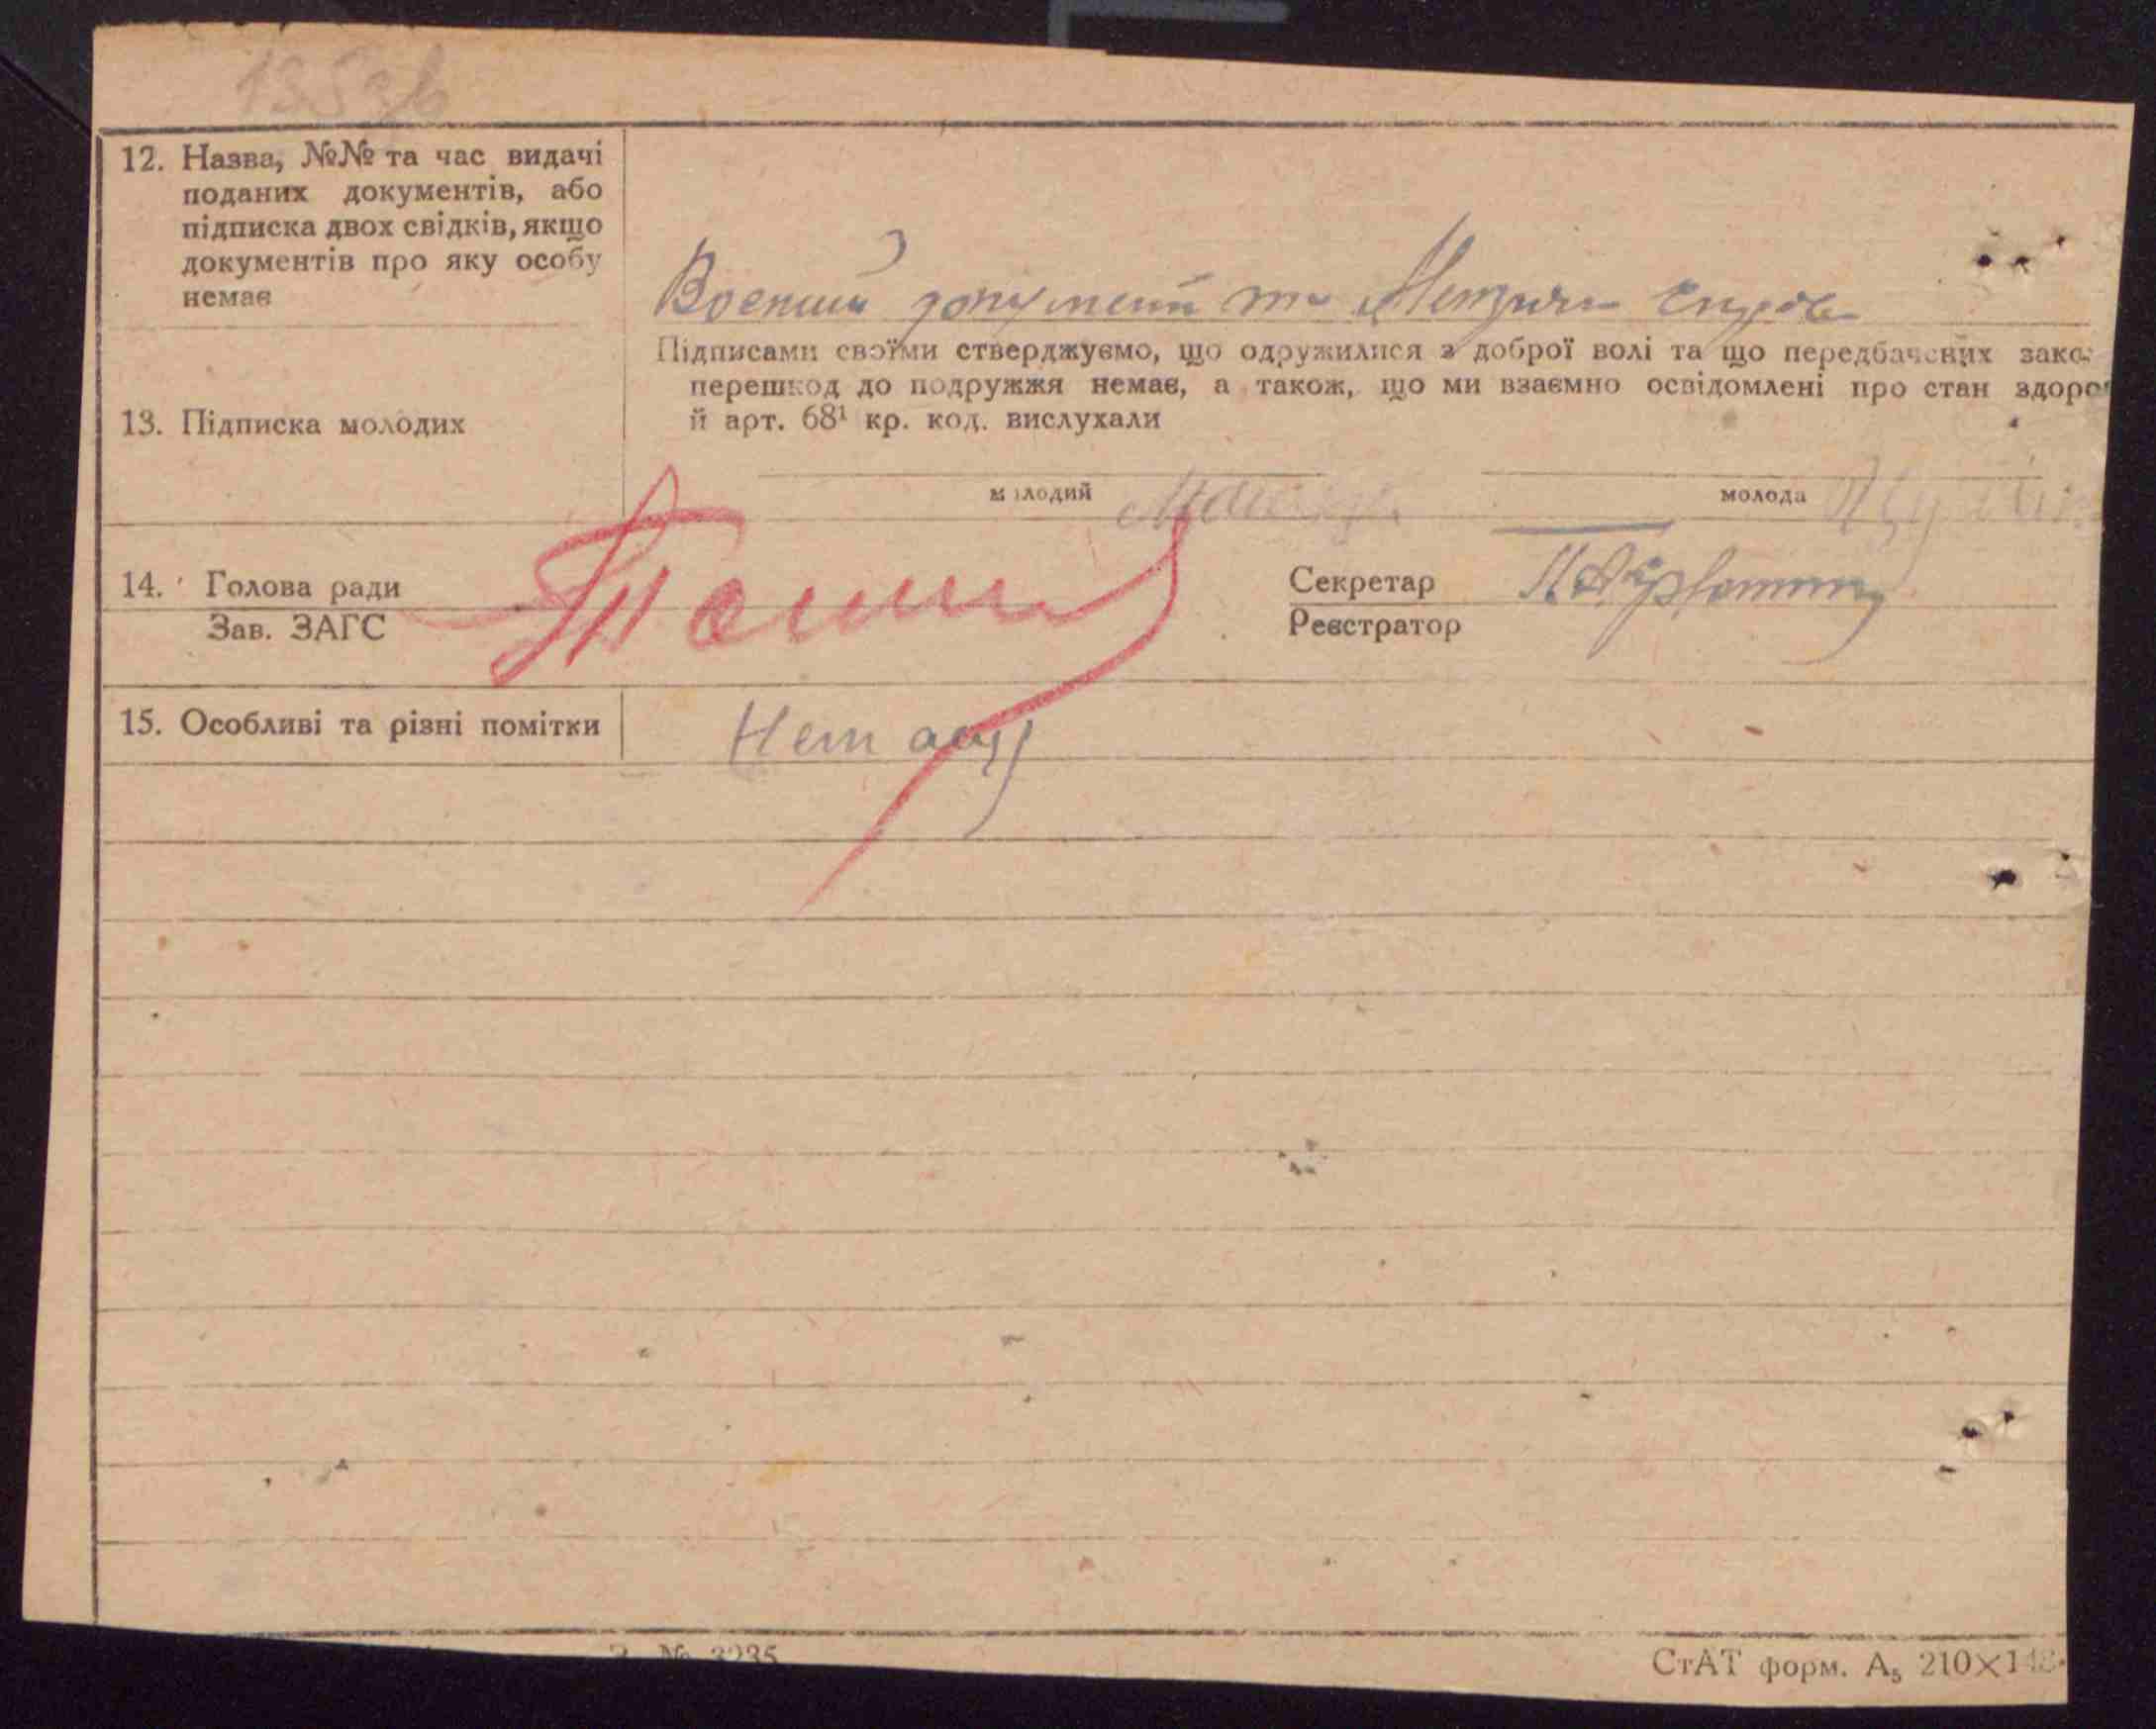 135 зв
12. Назва, №№ та час видачі
поданих документів, або
підписка двох свідків, якщо
документів про яку особу
немає
документ та
13. Підписка молодих
Підписами своїми стверджуємо, що одружилися з доброї волі та що передбачених зако
перешкод до подружжя немає, а також, що ми взаємно освідомлені про стан здоро
й арт. 68¹ кр. код. вислухали
молодий
молода
14. Голова ради
Зав. ЗАГС
Секретар
Реєстратор
15. Особливі та різні помітки
З. № 3235
СтАТ форм. А₅ 210×148